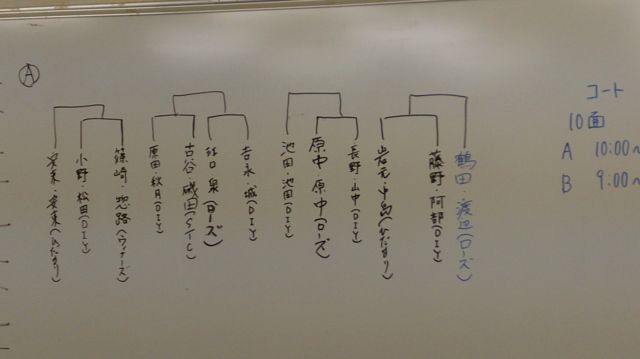 Ⓐ
安東・安東(ひだまり)
小野・松田(DIY)
篠崎・惣路(ウィナーズ)
原田・秋月(DIY)
古谷・磯田(STC)
江口・泉(ローズ)
吉永・城(DIY)
池田・池田(DIY)
原中・原中(ローズ)
長野・山中(DIY)
岩元・中島(ひだまり)
藤野・阿部(DIY)
鶴田・渡辺(ローズ)
コート
10面
A 10:00~
B 9:00~